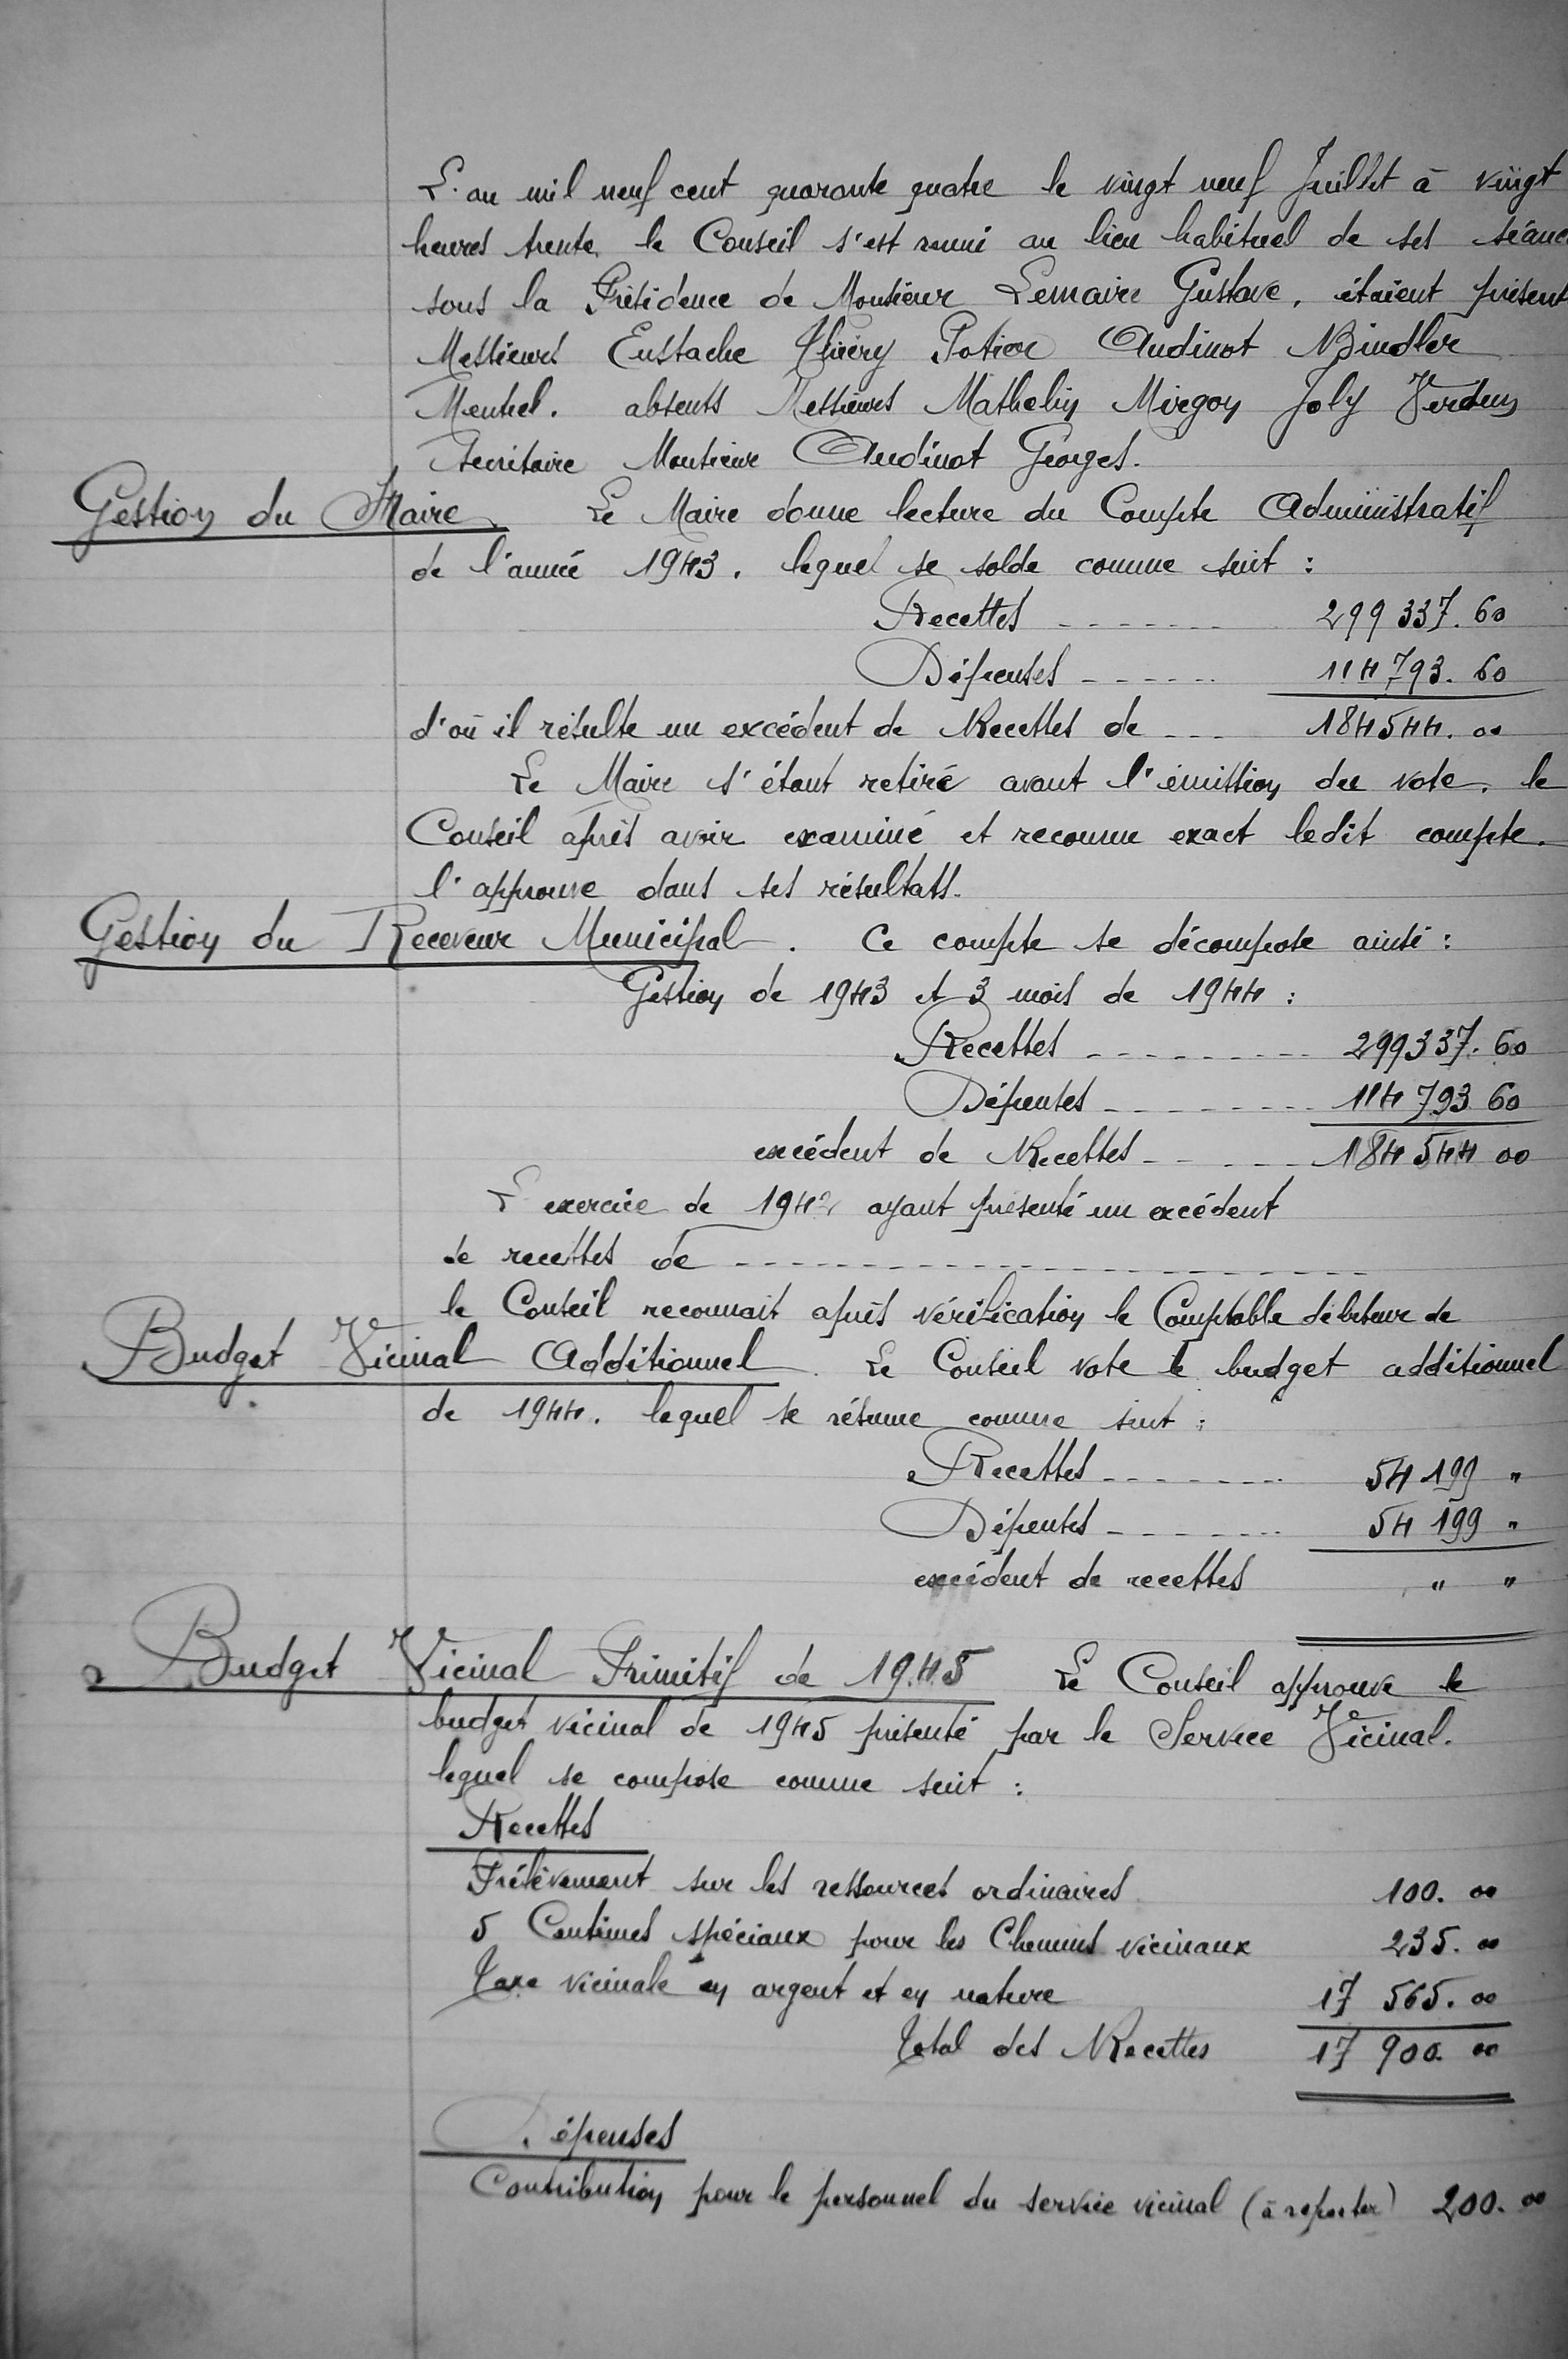 L'an mil neuf cent quarante quatre le vingt neuf Juillet à vingt
heures trente. le Conseil s'est reuni au lieu habituel de ses séanc
sous la Présidence de Monsieur Lemaire Gustave. étaient présent
Messieurs Eustache Thiéry Potier Audinot Bindler
Menhel. absents Messieurs Mathelin Mirgon Joly Verdun
Secrétaire Monsieur Audinot Georges.
Gestion du Maire Le Maire donne lecture du Compte Administratif
de l'année 1943. lequel se solde comme suit :
Recettes ------- 299 337. 60
Dépenses ------ 114 793. 60
d'où il résulte un excédent de Recettes de --- 184 544. 00
Le Maire s'étant retiré avant l'émission du vote. le
Conseil après avoir examiné et reconnu exact ledit compte.
l'approuve dans ses résultats.
Gestion du Receveur Municipal. Ce compte se décompose ainsi :
Gestion de 1943 et 3 mois de 1944 :
Recettes --------- 299337. 60
Dépenses --------- 114 793 60
excédent de Recettes ------ 184 544 00
L'exercice de 1942 ayant présenté un excédent
de recettes de -----------------------
le Conseil reconnait après vérification le Comptable débiteur de
Budget Vicinal Additionnel. Le Conseil vote le budget additionnel
de 1944. lequel se résume comme suit :
Recettes ------- 54 199 "
Dépenses ------- 54 199 "
excédent de recettes " "
Budget Vicinal Primitif de 1945 Le Conseil approuve le
budget vicinal de 1945 présenté par le Service Vicinal.
lequel se compose comme suit :
Recettes
Prélèvement sur les ressources ordinaires 100. 00
5 Centimes spéciaux pour les Chemins vicinaux 235. 00
Taxe vicinale en argent et en nature 17 565. 00
Total des Recettes 17 900. 00
Dépenses
Contribution pour le personnel du service vicinal (à reporter) 200. 00